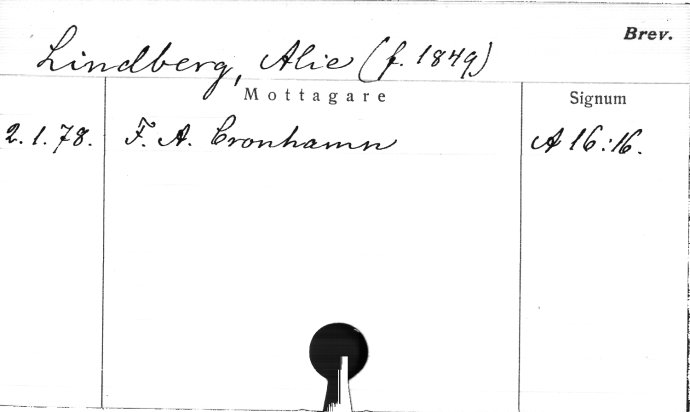 Brev.
Lindberg, Alie (f. 1849)
Mottagare Signum
2.1.78. F. A. Cronhamn A 16:16.